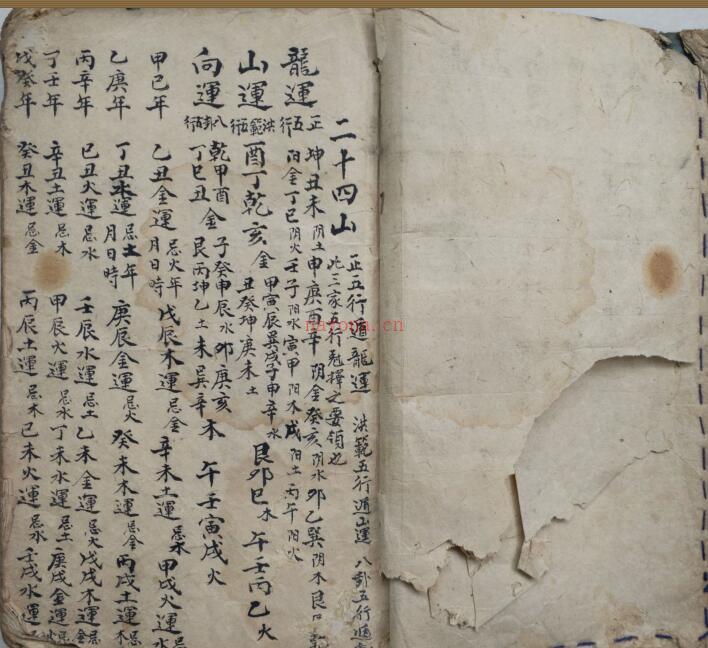 二十四山
正五行遁龍運 洪範五行遁山運 八卦五行遁
此三家五行剋擇之要領也
龍運 正五行 坤丑未阴土申庚酉辛阴金癸亥阴水卯乙巽阴木艮
阳金丁巳阴火壬子阳水寅甲阳木戌阳土丙午阳火
山運 洪範五行 酉丁乾亥金 甲寅辰巽戌子申辛水
丑癸坤庚未土 艮卯巳木 午壬丙乙火
向運 八卦五行 乾甲酉丁巳丑金 子癸申辰水 艮丙坤乙土 卯庚亥未巽辛木 午壬寅戌火
甲巳年 乙丑金運忌火年月日時 戊辰木運忌金 辛未土運忌木 甲戌火運忌水
乙庚年 丁丑水運忌土年月日時 庚辰金運忌火 癸未木運忌金 丙戌土運忌木
丙辛年 巳丑火運忌水 壬辰水運忌土 乙未金運忌火 戊戌木運忌金
丁壬年 辛丑土運忌木 甲辰火運忌水 丁未水運忌土 庚戌金運忌
戊癸年 癸丑木運忌金 丙辰土運忌木 巳未火運忌水 壬戌水運
nayona.cn